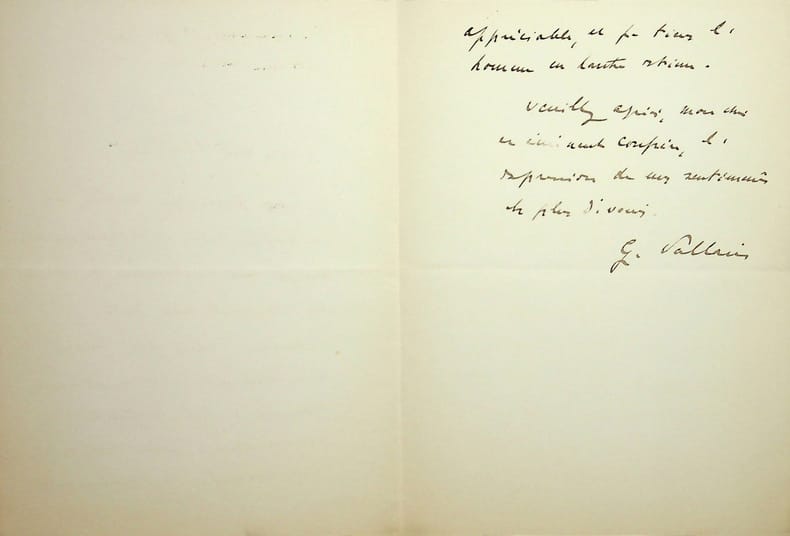 appréciable, et je tiens l'
homme en haute estime.
Veuillez agréer, mon cher
et éminent confrère, l'
expression de mes sentiments
les plus dévoués.
G. Pallain